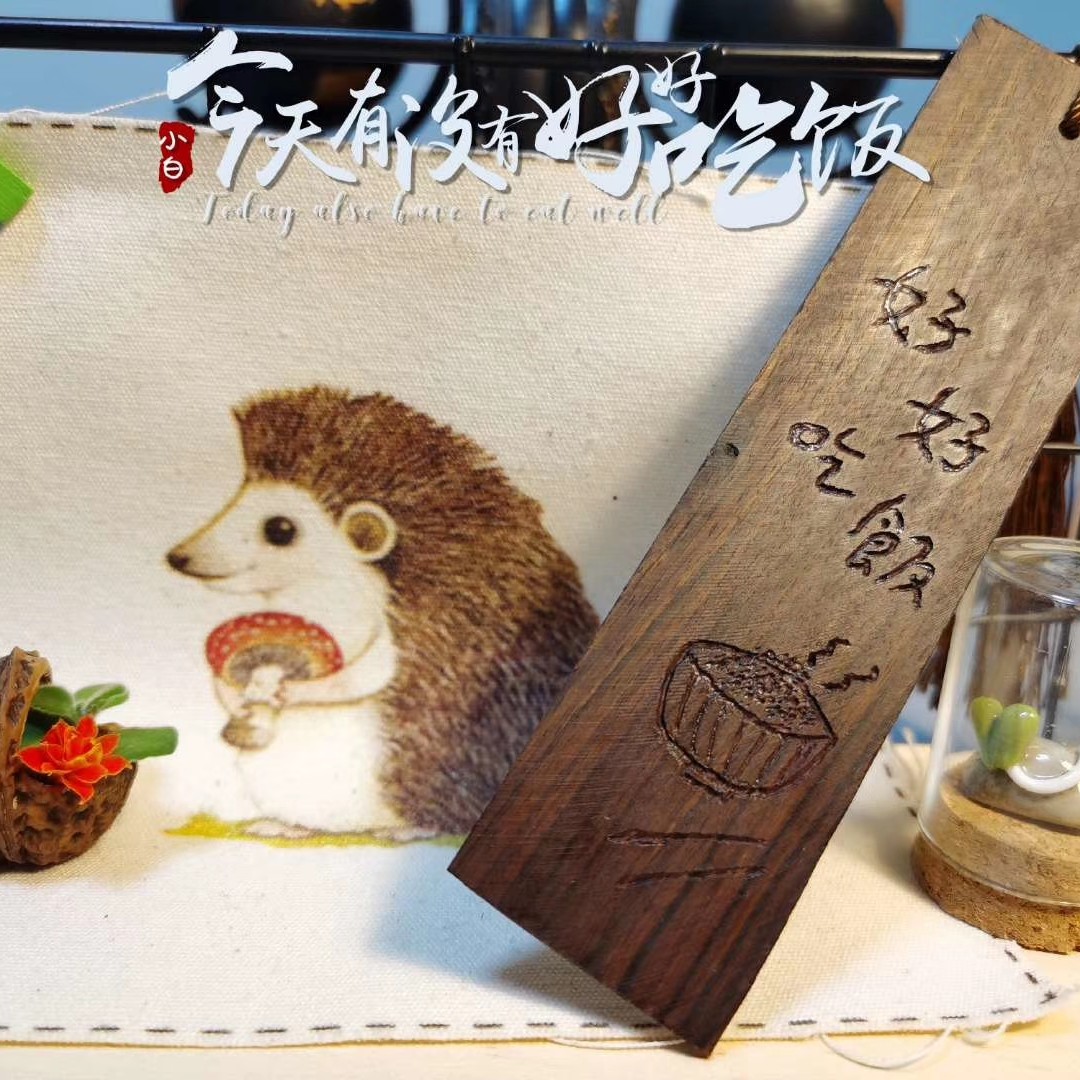 今天有没有好好吃饭
小白
Today also have to eat well
好
好
吃
飯